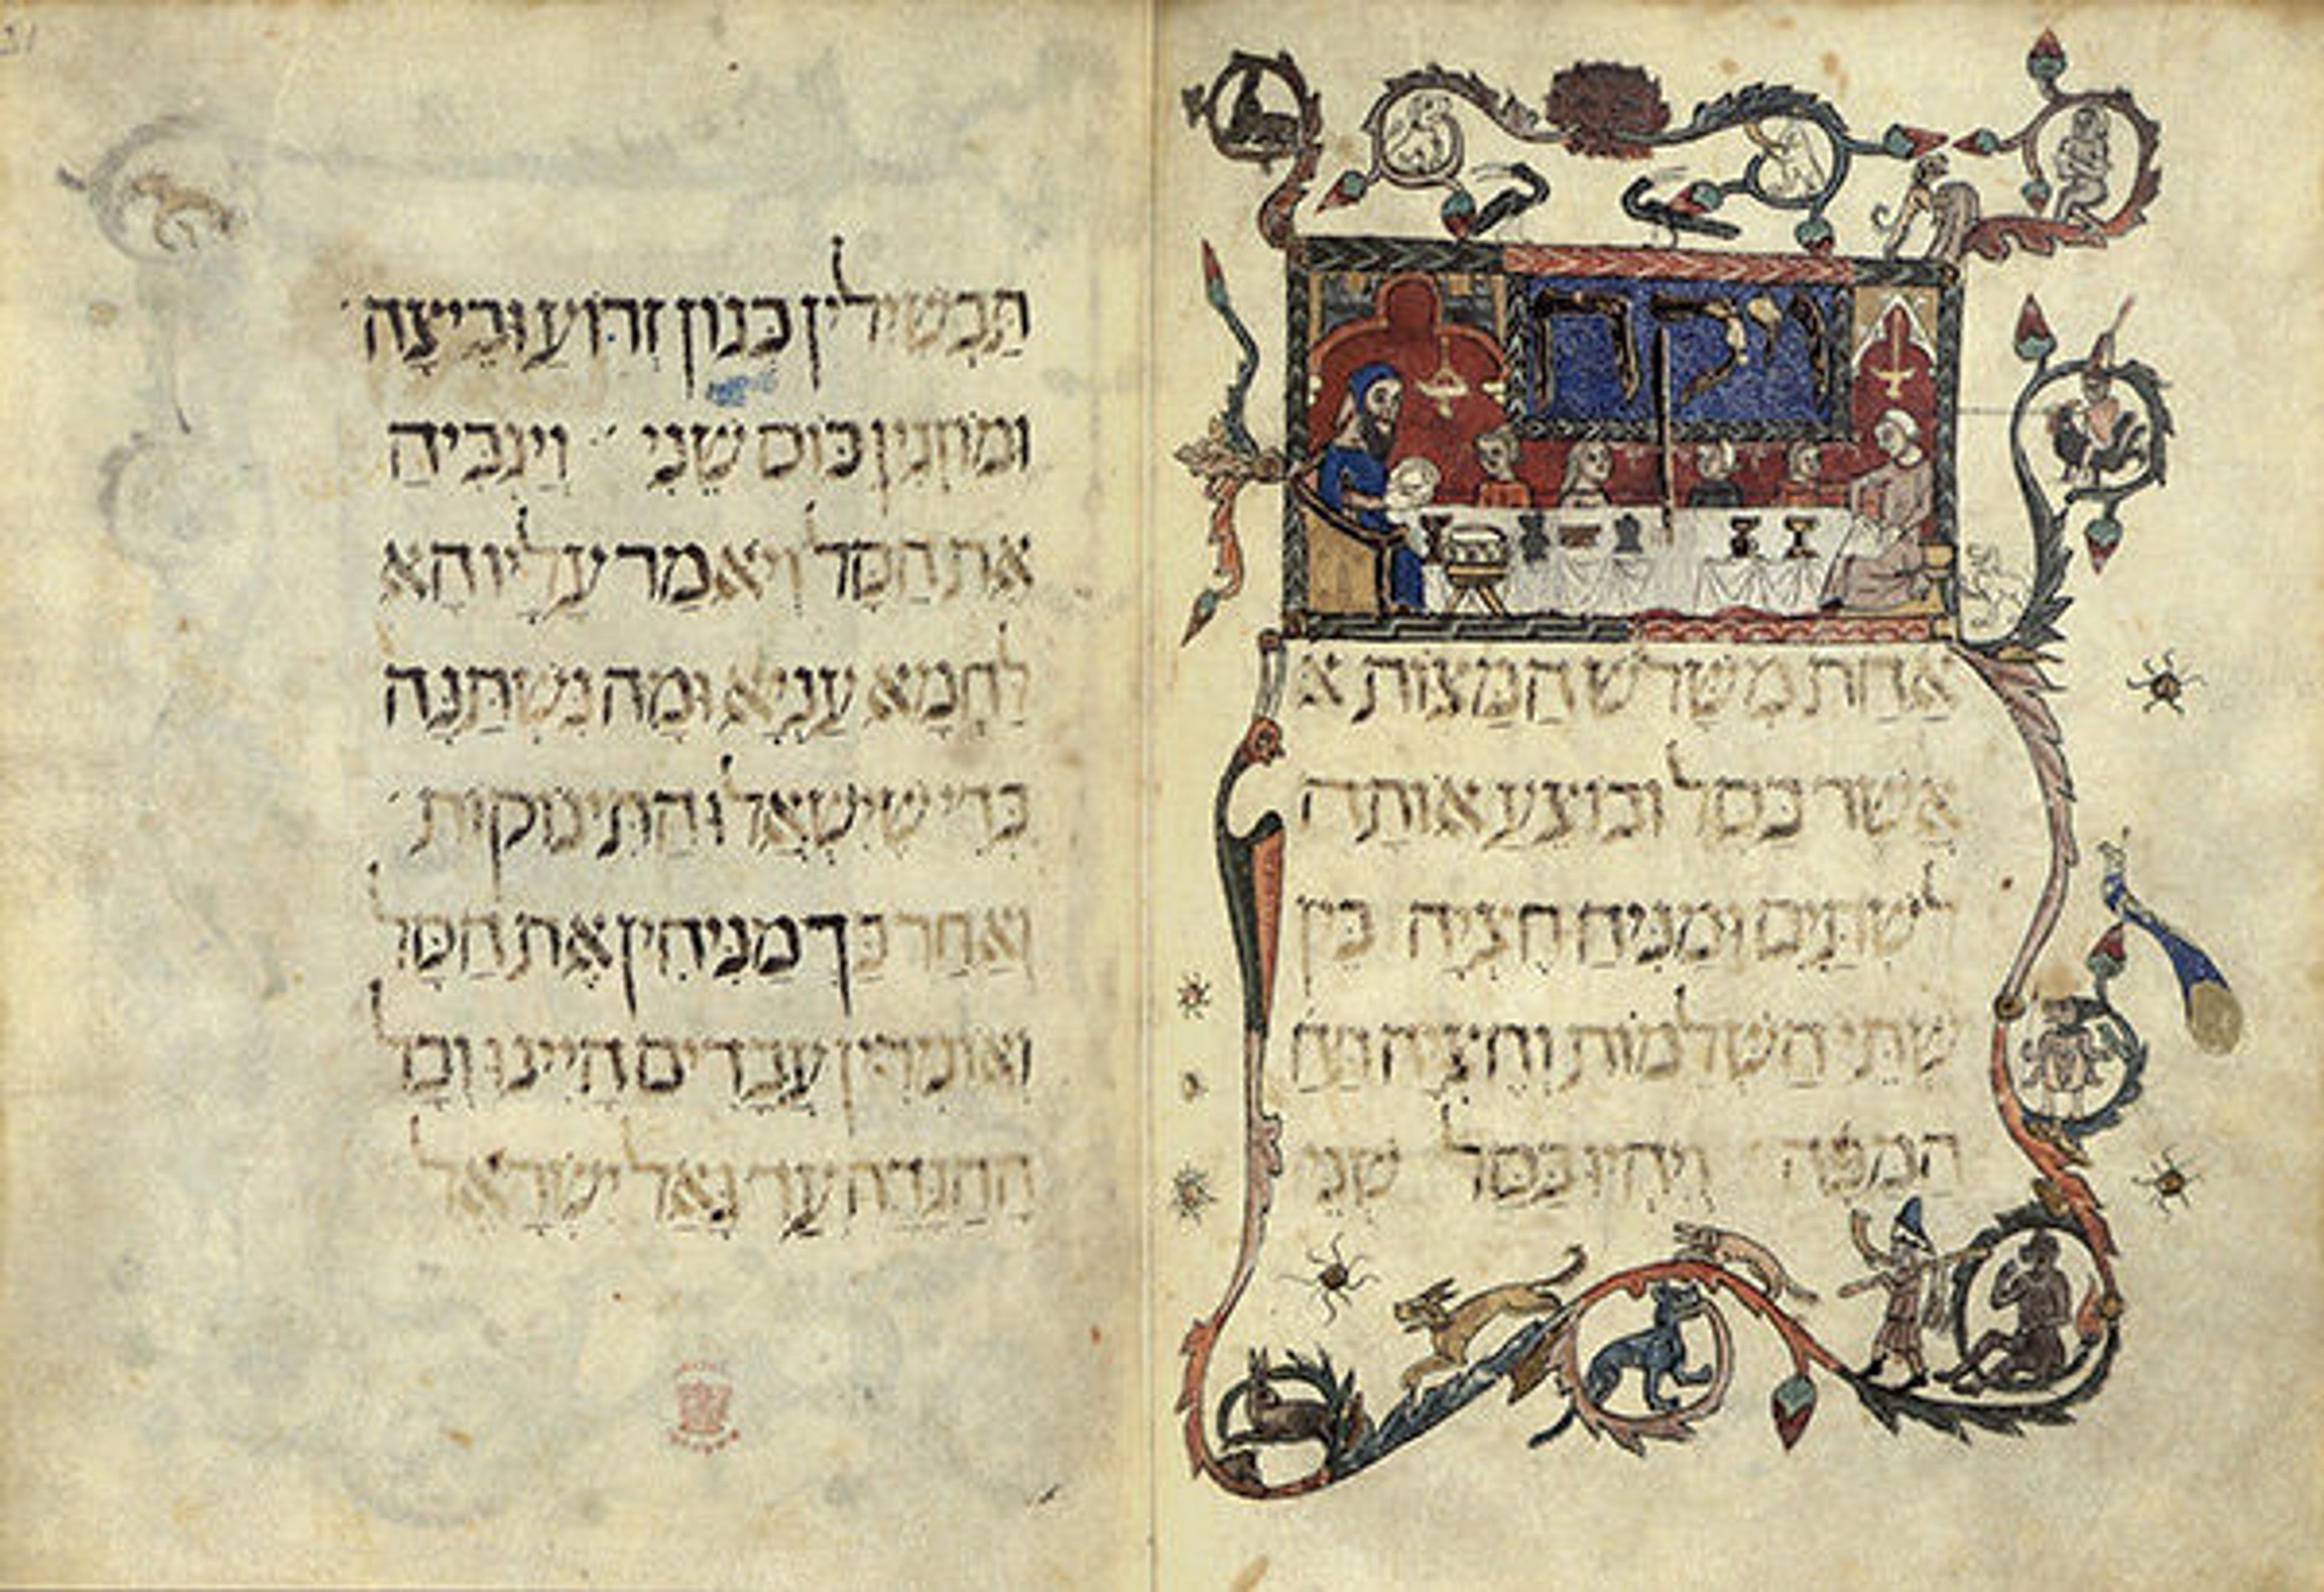 ויקח
אחת משלש המצות א
אשר בסל ובוצע אותה
לשתים ומניח חציה בין
שתי השלמות וחציה תח
המפה ויהיו בסל שני
תבשילין כגון זרוע וביצה
ומוזגין כוס שני וינביה
את הסל ויאמר עליו הא
לחמא עניא ומה נשתנה
כדי שישאלו התינוקות
ואחר כך מניחין את הסל
ואומרין עבדים היינו וכל
ההגדה עד גאל ישראל